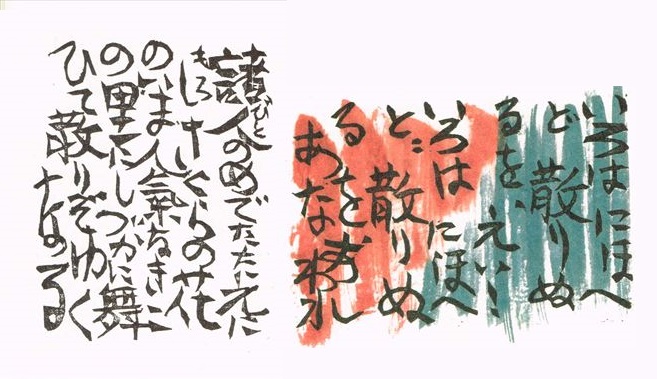 いろはにほへ
ど散りぬ
るを、えい〳〵
いろはにほへ
ど散りぬ
るを
あな
諸人のめでたたへに
びと
もろ
しさくらの花
のいま人氣なきこ
の里にしづかに舞
ひて散りぞゆくなる